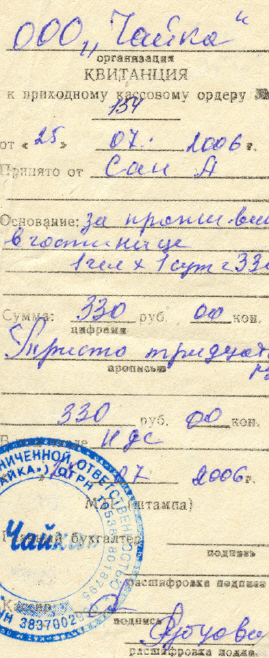 ООО „Чайка“
организация
КВИТАНЦИЯ
к приходному кассовому ордеру №
154
от « 25 » 07. 2006 г.
Принято от Сан А
Основание: за прожив
в гостинице
1 чел х 1 сут = 330
Сумма: 330 руб. 00 коп.
цифрами
Триста тридцать
прописью
330 руб. 00 коп.
В НДС
07 2006 г.
М. (штампа)
бухгалтер
подпись
расшифровка подписи
Кассир
подпись
расшифровка подпи.
НИЧЕННОЙ ОТВЕТСТВЕННОСТЬЮ
АЙКА») * ОГРН
Чайка